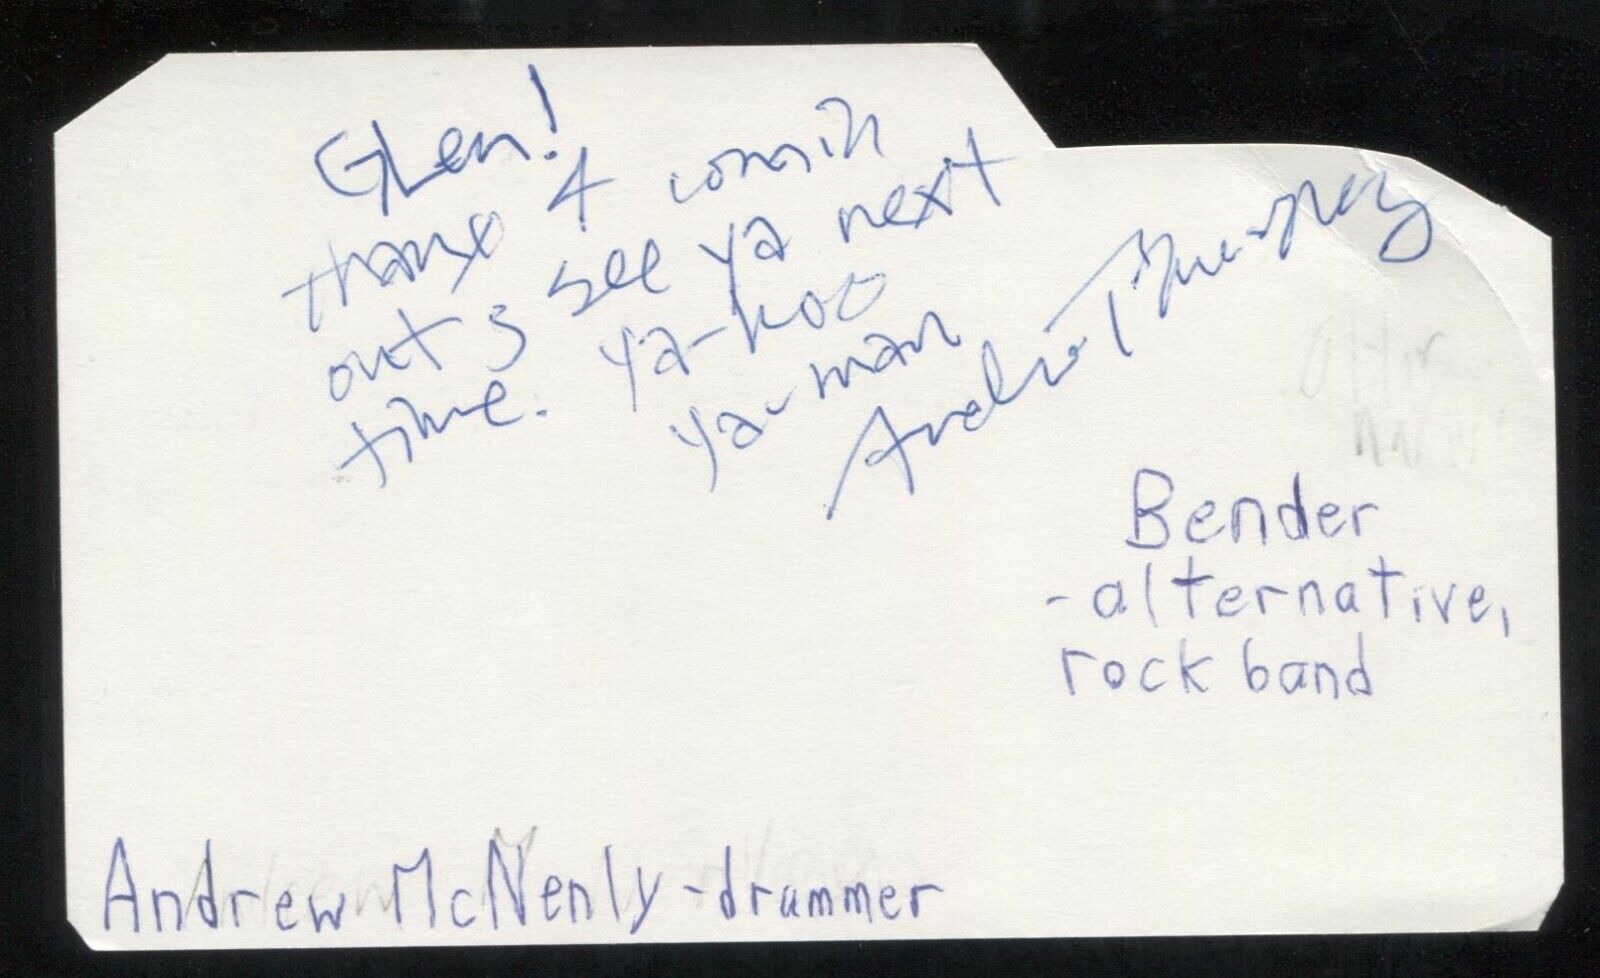 GLen!
thanx 4 comin
out & see ya next
time. ya-hoo
ya-man
Andrew
Bender
-alternative,
rock band
Andrew McNenly -drummer